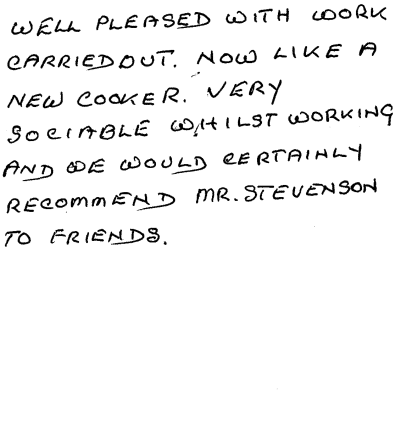 WELL PLEASED WITH WORK
CARRIED OUT. NOW LIKE A
NEW COOKER. VERY
SOCIABLE WHILST WORKING
AND WE WOULD CERTAINLY
RECOMMEND MR. STEVENSON
TO FRIENDS.